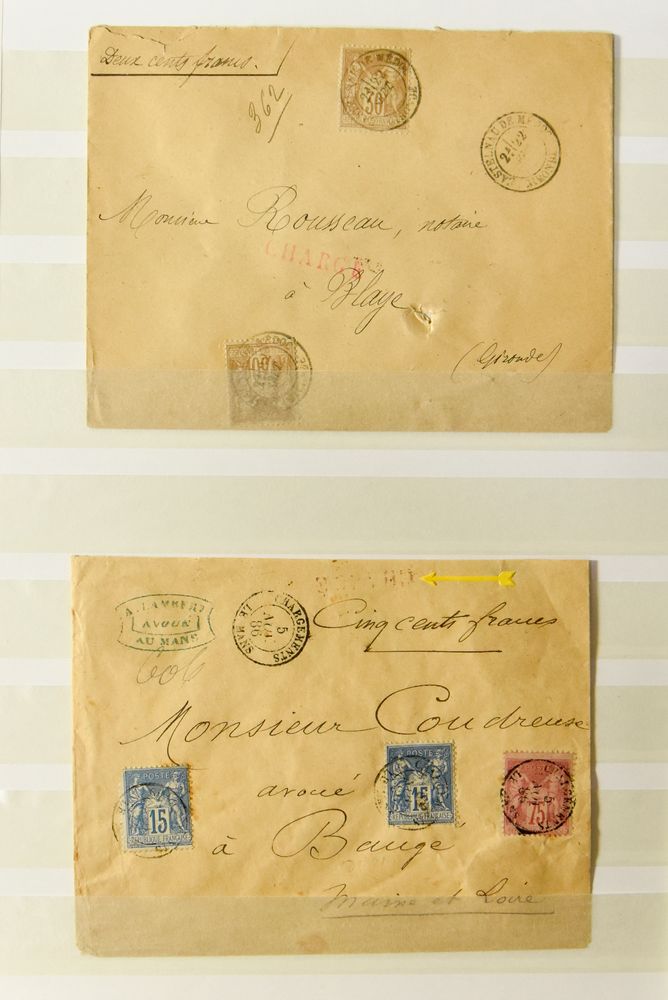 Deux cents francs.
362
30
CASTELNAU DE MÉDOC
22
GIRONDE
Monsieur Rousseau, notaire
CHARGÉ
à Blaye
(Gironde)
30
A. LAMBERT
AVOUÉ
AU MANS
606
CHARGEMENTS
5
AOU
86
LE MANS
Cinq cents francs
Monsieur Coudreuse
avoué
à Baugé
Maine et Loire
POSTE
15
REPUBLIQUE FRANÇAISE
POSTE
15
REPUBLIQUE FRANÇAISE
75